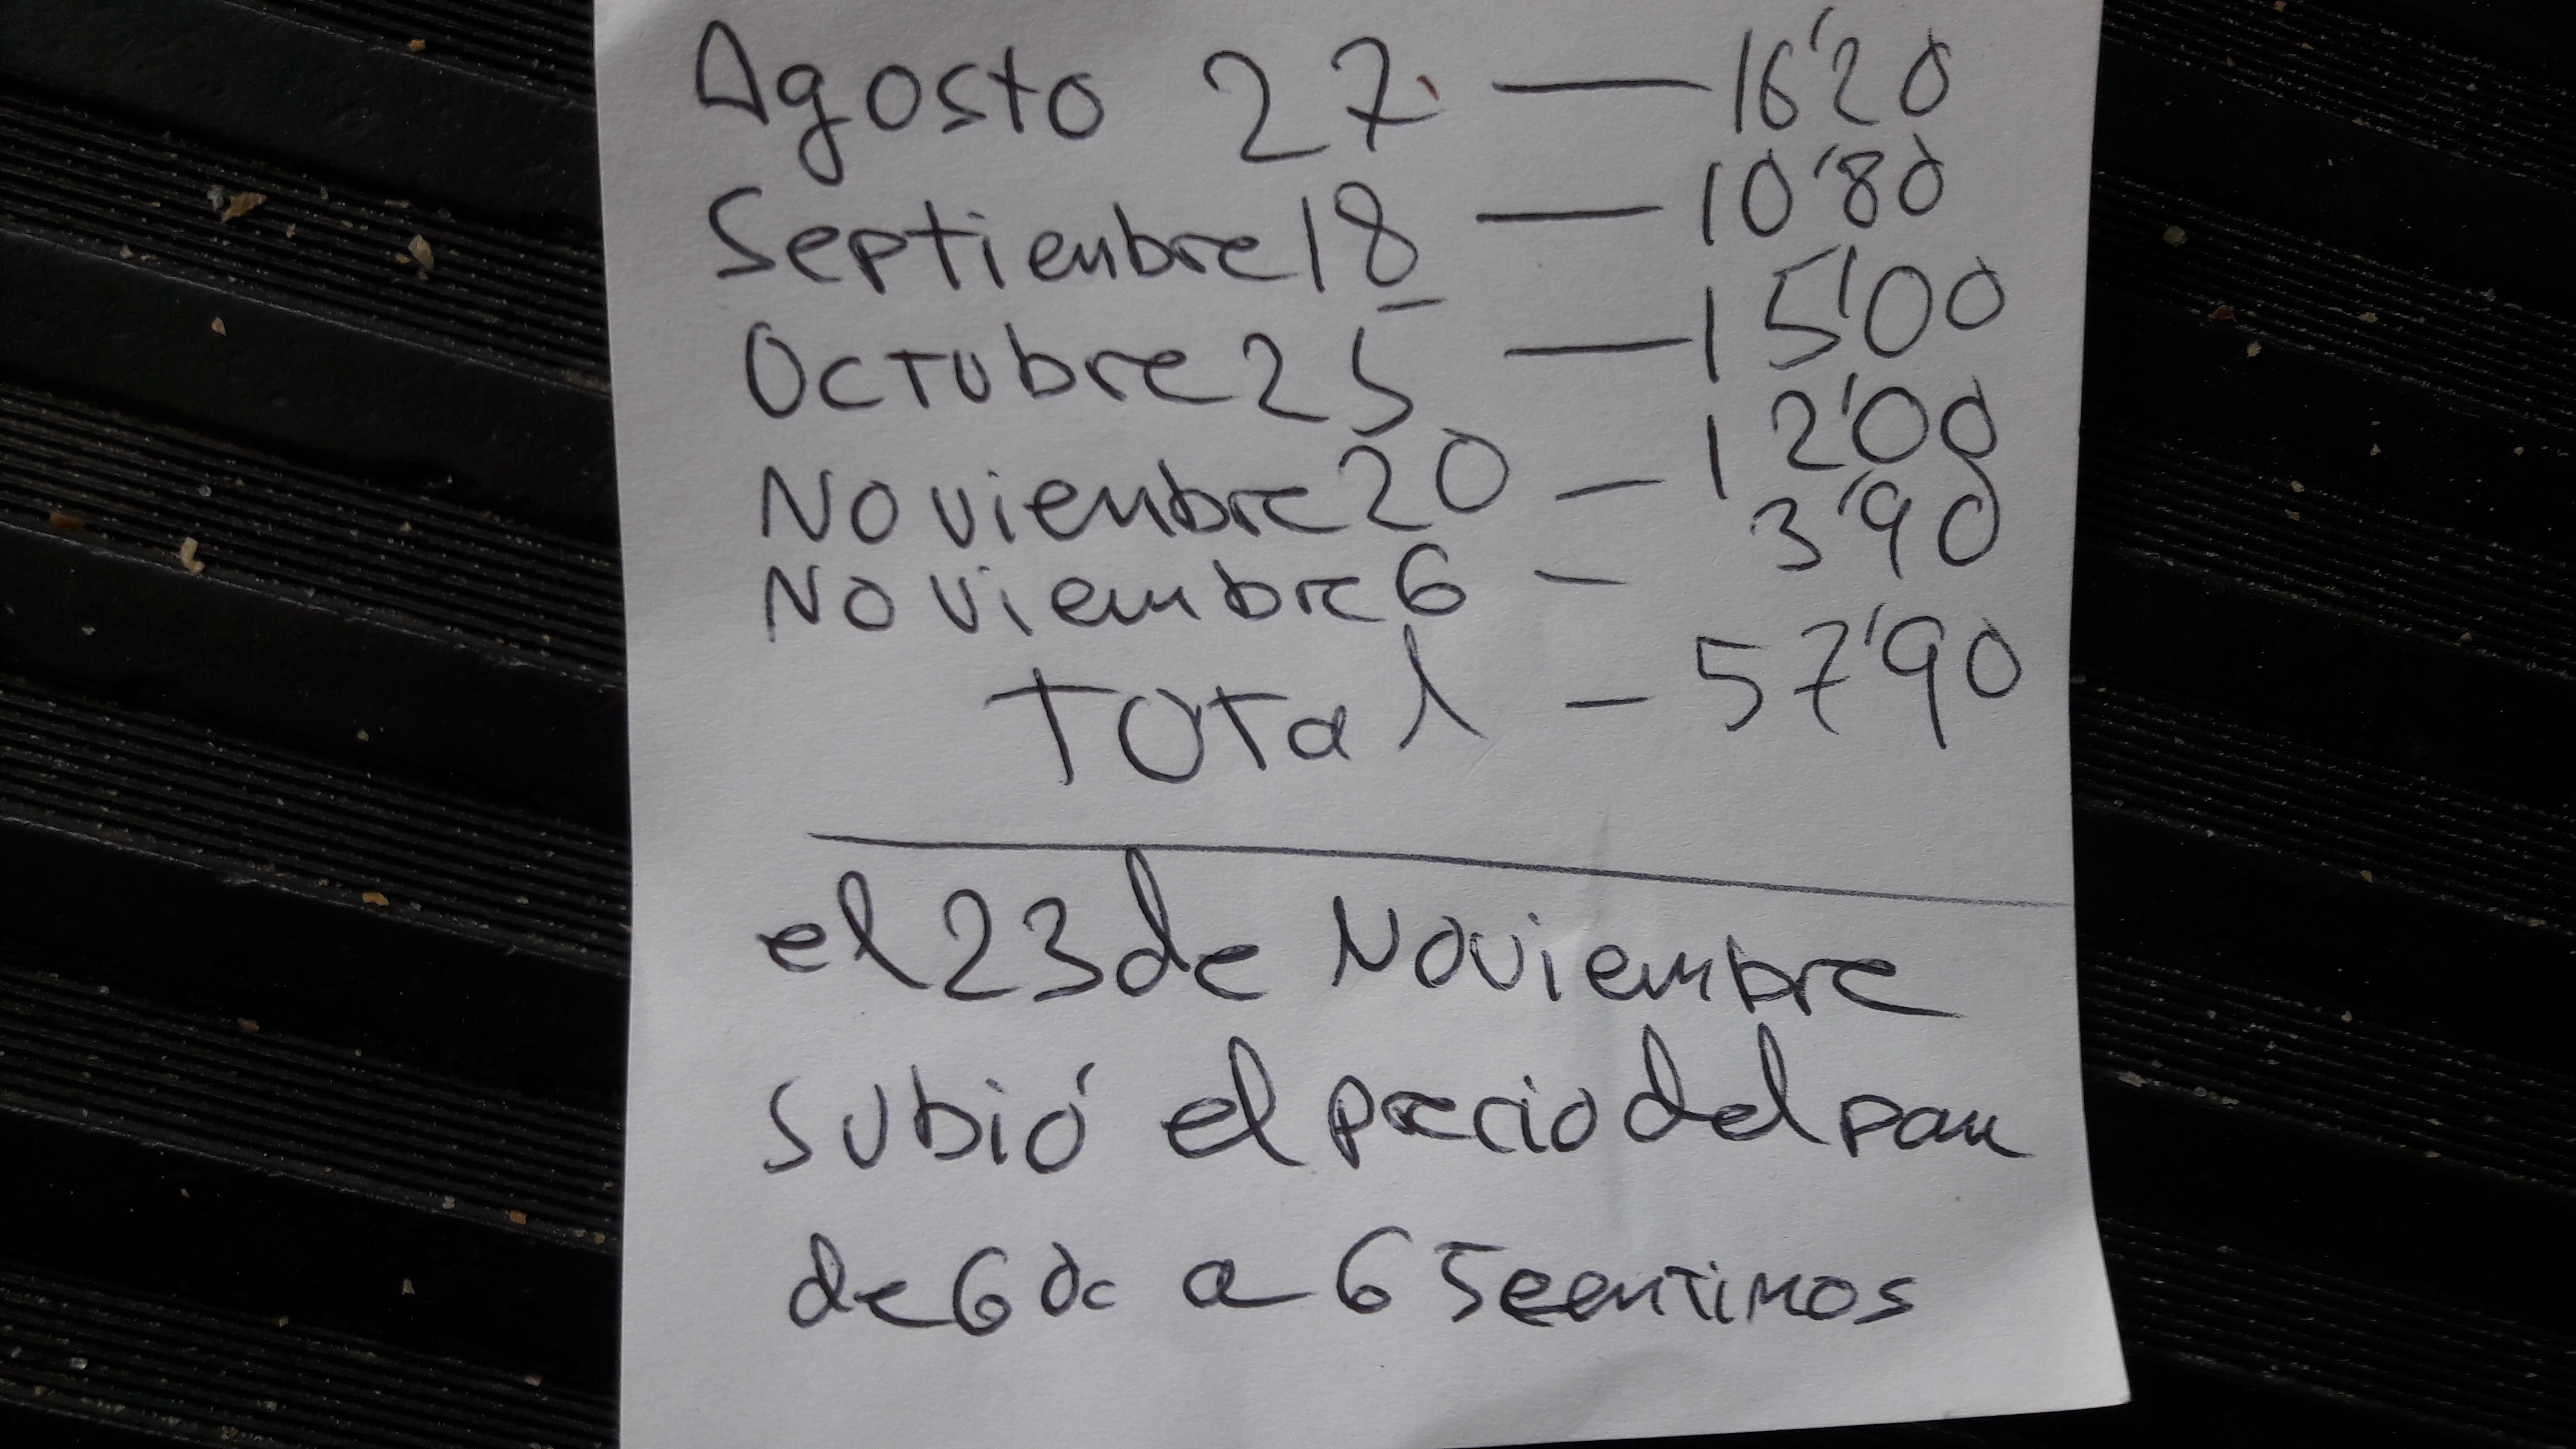 Agosto 27 — 16'20
Septiembre 18 — 10'80
Octubre 25 — 15'00
Noviembre 20 — 12'00
Noviembre 6 — 3'90
Total — 57'90
el 23 de Noviembre
subió el precio del pan
de 60c a 65 centimos